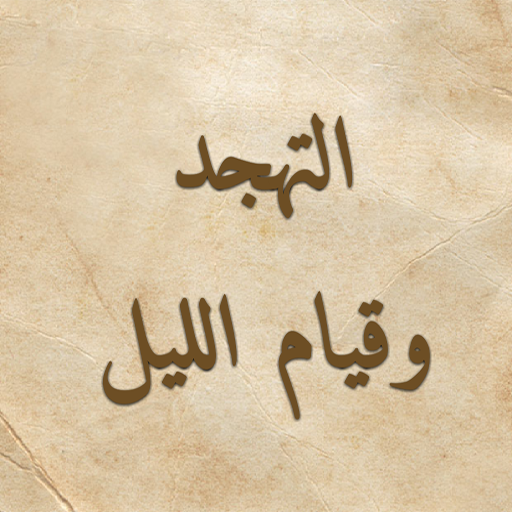 التهجد
وقيام الليل